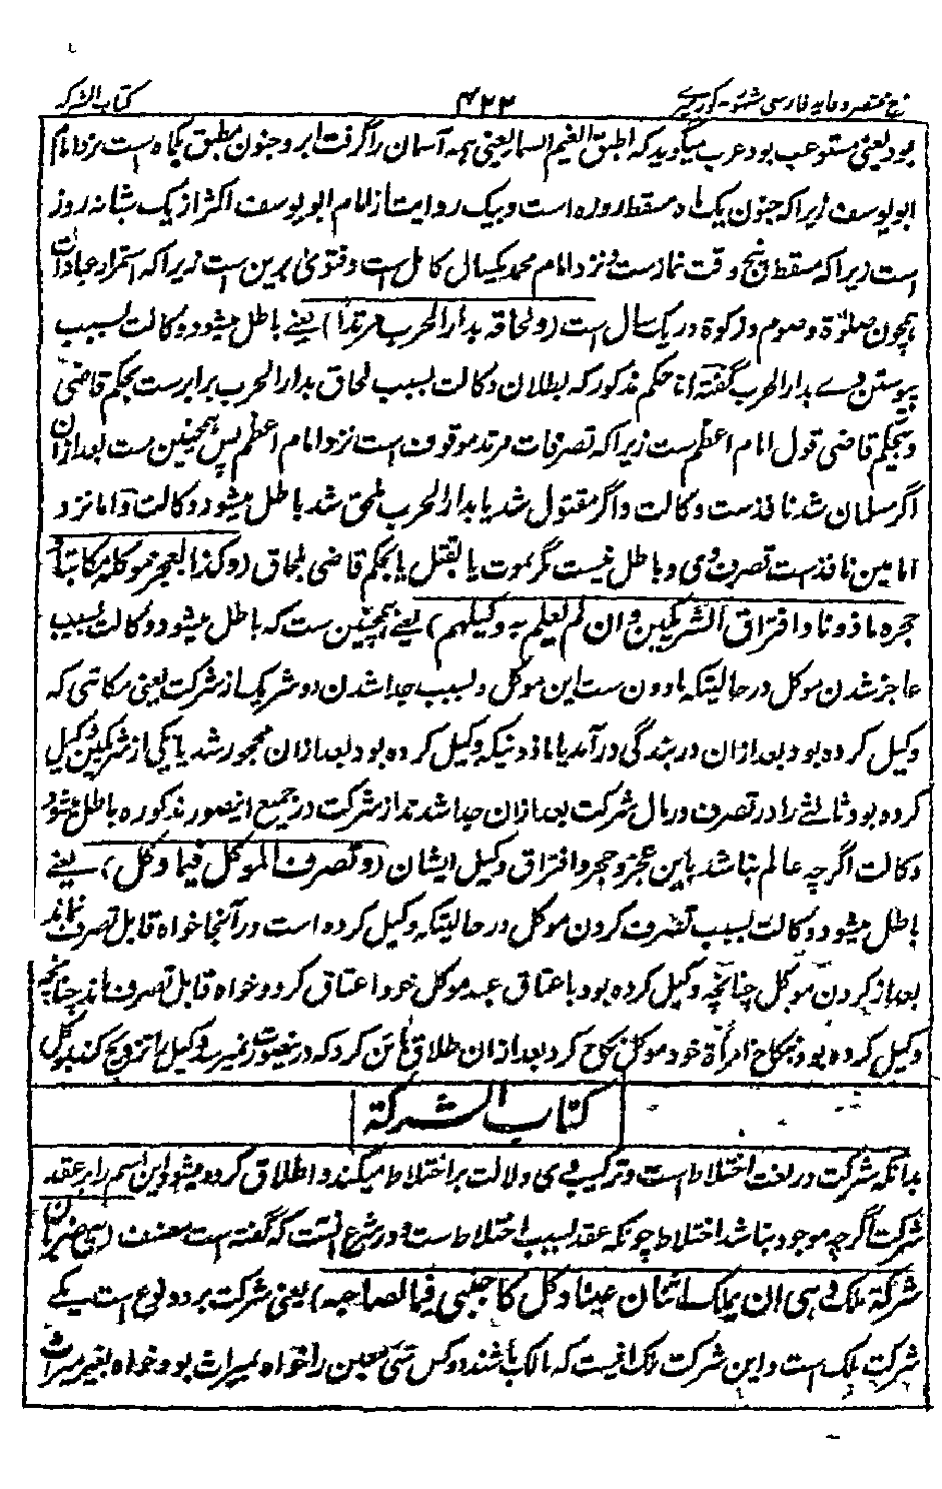 کتاب الشرکة ۴۲۲ شرح مختصر وقایه فارسی
بود یعنی مستوعب بود عرب میگوید که اطبق الغیم السماء یعنی همه آسمان را گرفت ابر و جنون مطبق یکماه است نزد امام
ابو یوسف زیرا که جنون یک ماه مسقط روزه است و بیک روایت از امام ابو یوسف اکثر از یک شبانه روز
است زیرا که مسقط پنج وقت نماز ست و نزد امام محمد یکسال کامل است و فتوی برین است زیرا که استمرار عبادات
همچون صلوٰة و صوم و زکوة در یک سال است (و لحاقه بدار الحرب مرتدا) یعنے باطل میشود وکالت بسبب
پیوستن وے بدار الحرب گفته اند حکم مذکور که بطلان وکالت بسبب لحاق بدار الحرب برابرست بحکم قاضی
و بیحکم قاضی قول امام اعظم ست زیرا که تصرفات مرتد موقوف است نزد امام اعظم پس همچنین ست بعد ازان
اگر مسلمان شد نافذ ست وکالت و اگر مقتول شد یا بدار الحرب ملحق شد باطل میشود وکالت و اما نزد
امامین نافذ ست تصرف وی و باطل نیست مگر بموت یا بقتل یا بحکم قاضی بلحاق (و کذا بعجز موکله مکاتبا و
حجره ماذونا و افتراق الشریکین و ان لم یعلم به وکیلهم) یعنے همچنین ست که باطل میشود وکالت بسبب
عاجز شدن موکل در حالیکه ماذون ست این موکل و بسبب جدا شدن دو شریک از شرکت یعنی مکاتبی که
وکیل کرده بود بعد ازان در بندگی در آمد یا ماذونیکه وکیل کرده بود بعد ازان محجور شد یا یکی از شریکین وکیل
کرده بود ثالثے را در تصرف در مال شرکت بعد ازان جدا شدند از شرکت در جمیع اینصور مذکوره باطل میشود
وکالت اگرچه عالم نباشد باین عجز و حجر و افتراق وکیل ایشان (و تصرف الموکل فیما وکل) یعنے
باطل میشود وکالت بسبب تصرف کردن موکل در حالیکه وکیل کرده است در آنجا خواه قابل تصرف نماند
بعد از کردن موکل چنانچه وکیل کرده بود باعتاق عبد موکل خود اعتاق کرد و خواه قابل تصرف ماند چنانچه
وکیل کرده بود بنکاح امرأة خود موکل نکاح کرد بعد ازان طلاق بائن کرد که درینصورت نمیرسد وکیل را تزوج کند بموکل
کتاب الشرکة
بدانکه شرکت در لغت اختلاط است و ترکیب وی دلالت بر اختلاط میکند و اطلاق کرده میشود این اسم را بر عقد
شرکت اگرچه موجود نباشد اختلاط چونکه عقد سبب اختلاط ست و در شرع آنست که گفته است مصنف (هی ضربان
شرکة ملک و هی ان یملک اثنان عینا و کل کاجنبی فیما لصاحبه) یعنی شرکت بر دو نوع است یکے
شرکت ملک است و این شرکت ملک آنست که مالک باشند دو کس شئ معین را خواه بمیراث بود و خواه بغیر میراث